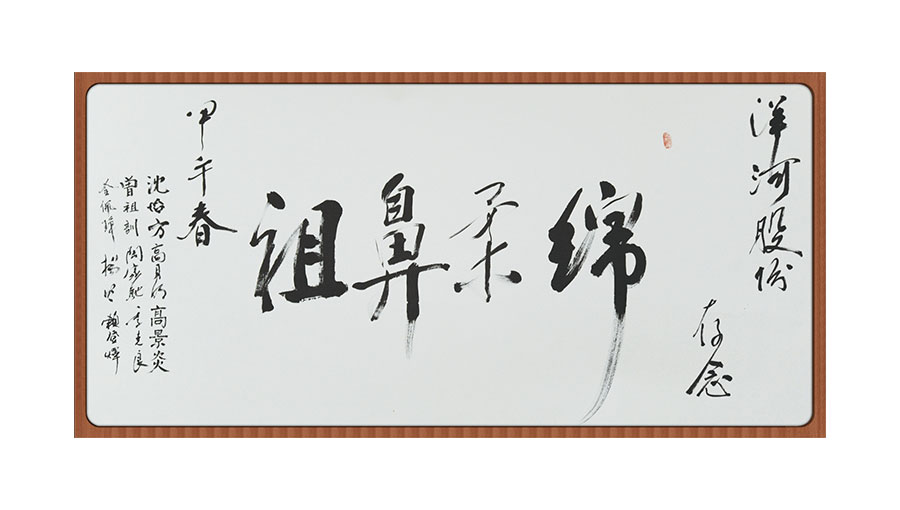 洋河股份
存念
绵柔鼻祖
甲午春
沈怡方 高月明 高景炎
曾祖训 陶家驰 季克良
金佩璋 赖登燡